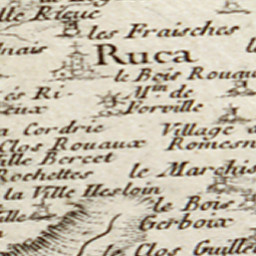 lle Rieue
les Fraisches
nais
Ruca
le Bois Rouau
és Ri-
eux
Mᶦⁿ de
Forville
a Cordrie
Village
Clos Rouaux
Romesn
ille Bercet
Rochettes
le Marchis
la Ville Ilesloin
le Bois
ille
Gerboix
le Clos Guille